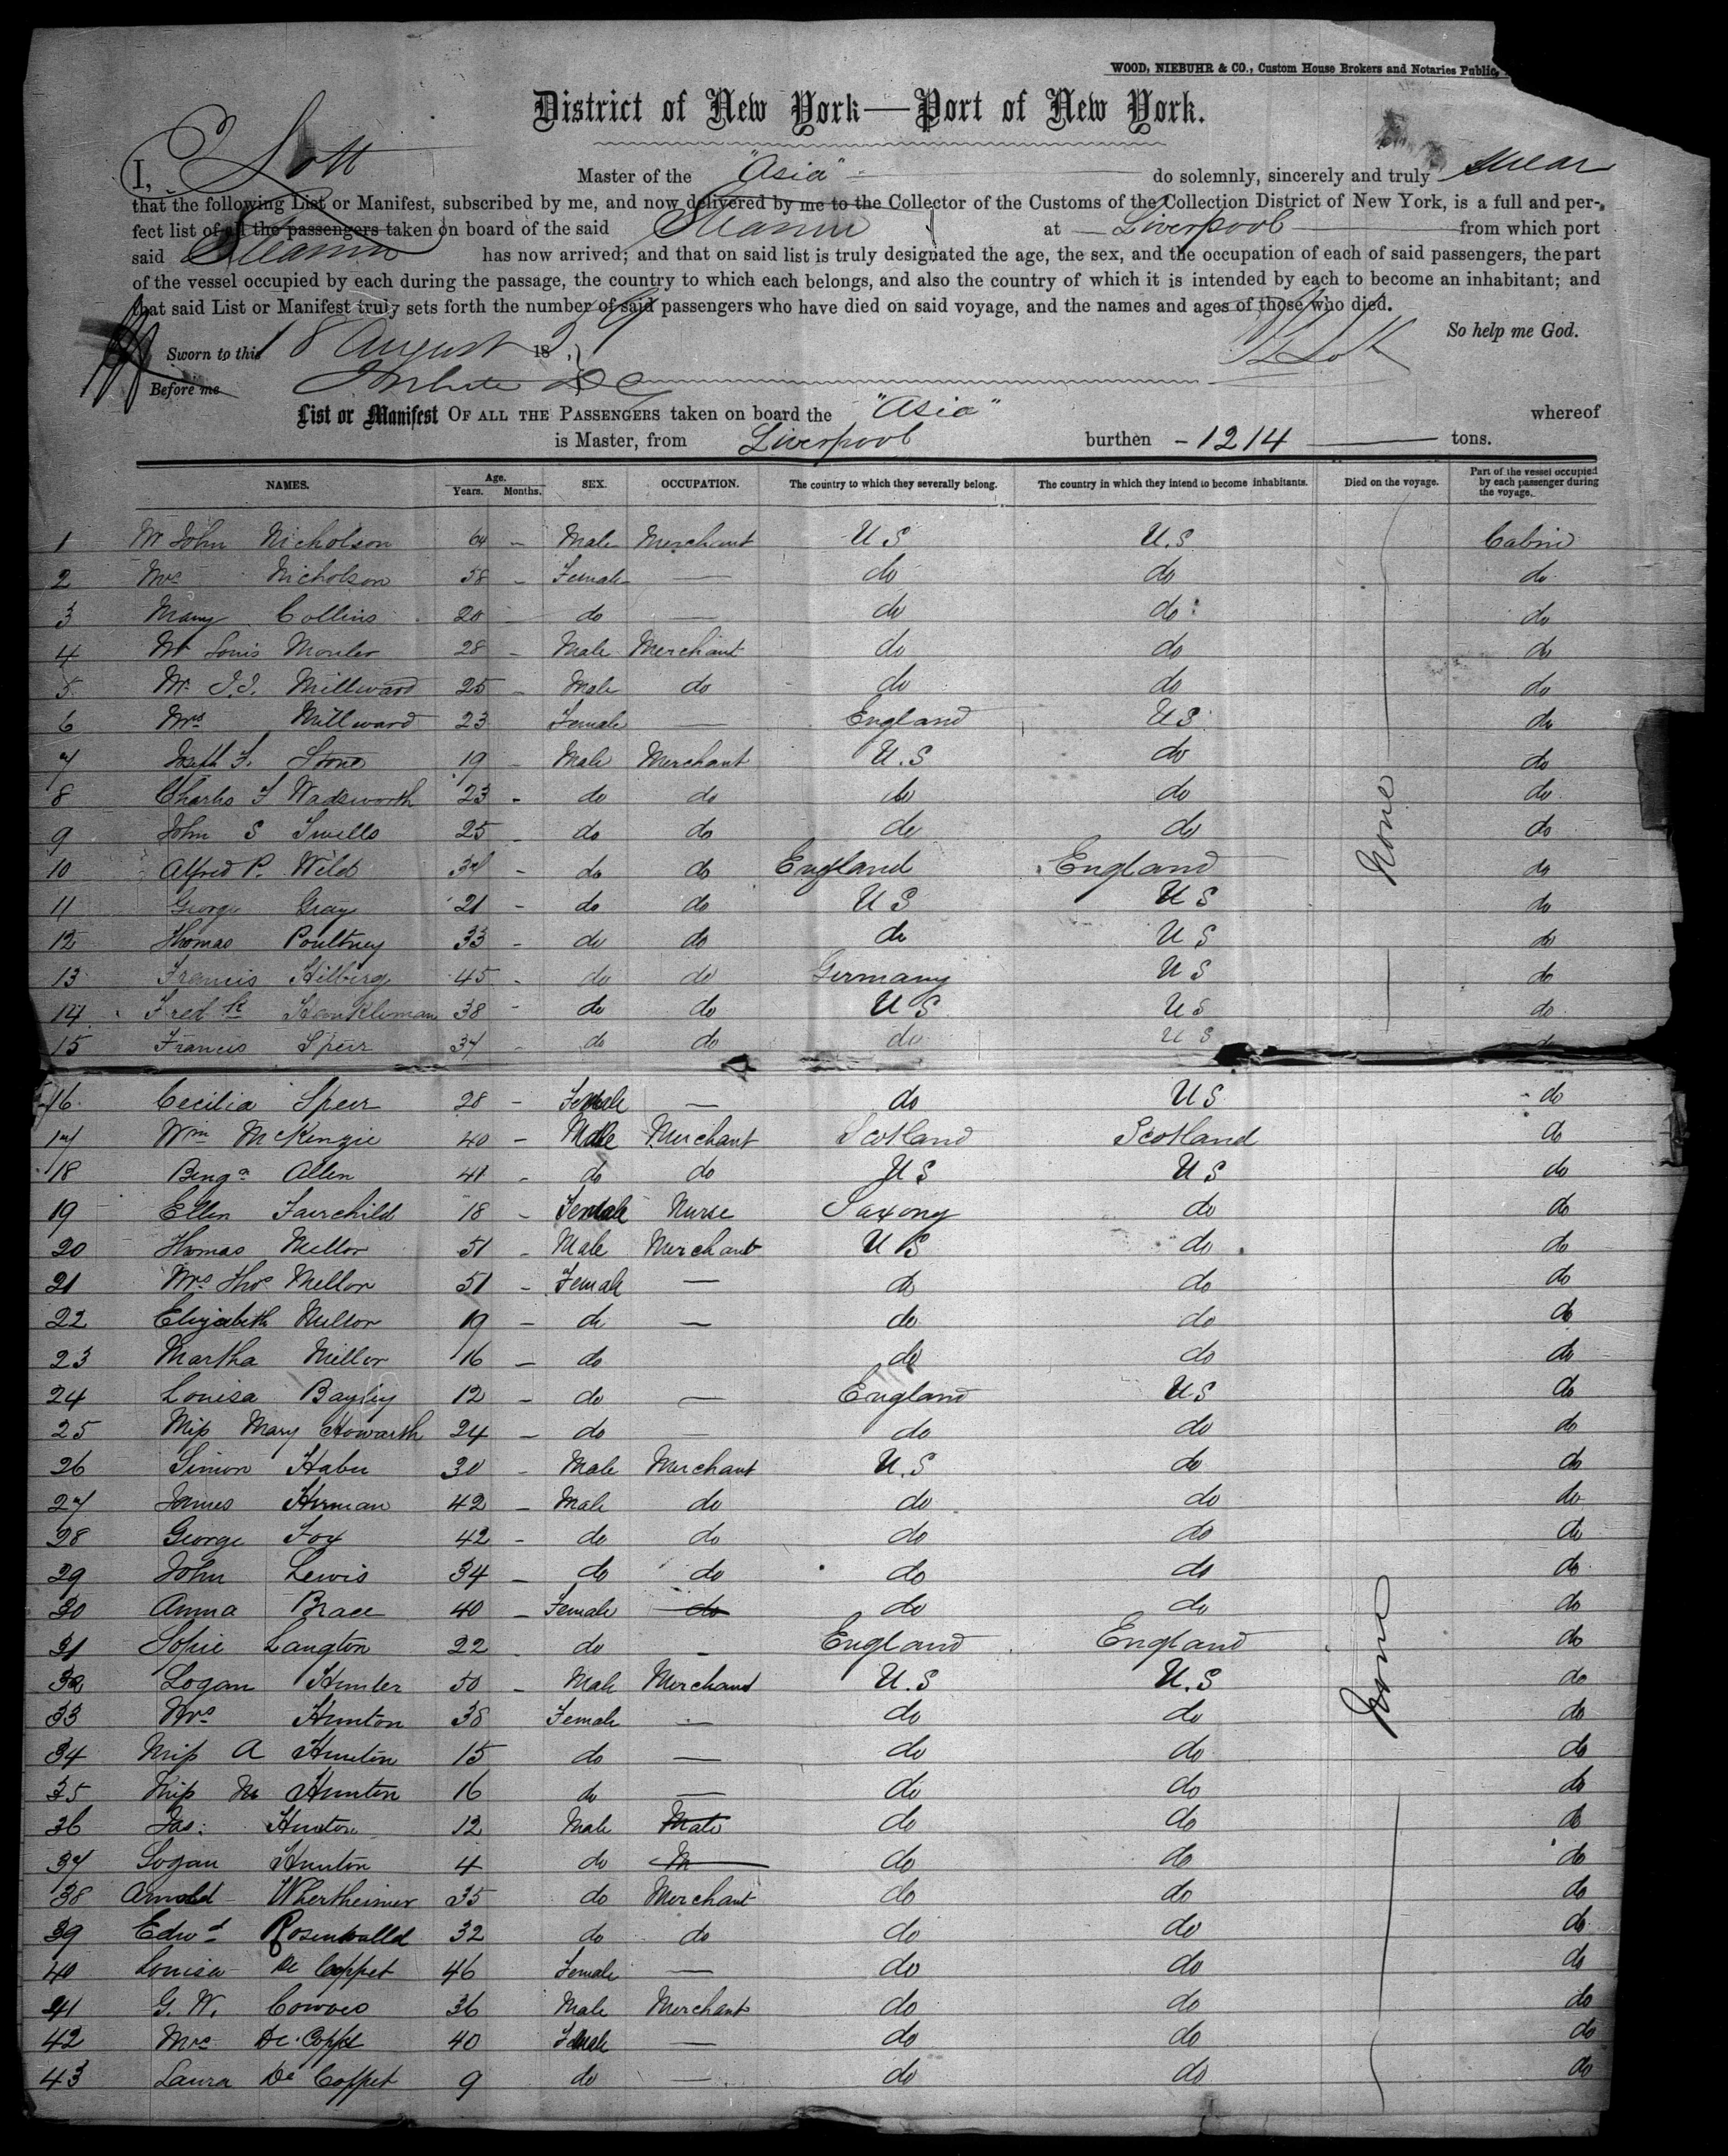 WOOD, NIEBUHR & CO., Custom House Brokers and Notaries Public,
District of New York—Port of New York.
I, E Lott Master of the "Asia" do solemnly, sincerely and truly swear
that the following List or Manifest, subscribed by me, and now delivered by me to the Collector of the Customs of the Collection District of New York, is a full and per-
fect list of all the passengers taken on board of the said Steamer at Liverpool from which port
said Steamer has now arrived; and that on said list is truly designated the age, the sex, and the occupation of each of said passengers, the part
of the vessel occupied by each during the passage, the country to which each belongs, and also the country of which it is intended by each to become an inhabitant; and
that said List or Manifest truly sets forth the number of said passengers who have died on said voyage, and the names and ages of those who died.
So help me God.
Sworn to this 18 August 1859 E Lott
Before me
List or Manifest OF ALL THE PASSENGERS taken on board the "Asia" whereof
is Master, from Liverpool burthen - 1214 tons.
NAMES. Age. Years. Months. SEX. OCCUPATION. The country to which they severally belong. The country in which they intend to become inhabitants. Died on the voyage. Part of the vessel occupied by each passenger during the voyage.
1 Mr John Nicholson 64 - Male Merchant U S U.S Cabin
2 Mrs Nicholson 58 - Female — do do do
3 Mary Collins 20 do — do do do
4 Mr Louis 28 - Male Merchant do do do
5 Mr J.J. Millward 25 - Male do do do do
6 Mrs Millward 23 Female — England US do
7 Joseph F. Stone 19 - Male Merchant U.S do do
8 Charles F Wadsworth 23 - do do do do do
9 John S 25 - do do do do do
10 Alfred P. Wild 34 - do do England England do
11 George Gray 21 - do do U S U S do
12 Thomas Poultney 33 - do do do U S do
13 Francis Hilberg 45 - do do Germany U S do
14 Fredk 38 - do do U S U S do
15 Francis Speir 34 - do do do U S do
16 Cecilia Speir 28 - Female — do U S do
17 Wm McKenzie 40 - Male Merchant Scotland Scotland do
18 Benja Allen 41 - do do U S U S do
19 Ellen Fairchild 18 - Female Nurse Saxony do do
20 Thomas Mellor 51 - Male Merchant U S do do
21 Mrs Thos Mellor 51 - Female — do do do
22 Elizabeth Mellor 19 - do — do do do
23 Martha Mellor 16 - do do do do
24 Louisa Bayley 12 - do — England U S do
25 Miss Mary Howarth 24 - do — do do do
26 Simon Haber 30 - Male Merchant U.S do do
27 James Herman 42 - Male do do do do
28 George Fox 42 - do do do do do
29 John Lewis 34 - do do do do do
30 Anna Brace 40 - Female do do do do
31 Sophie Langton 22 do - England England do
32 Logan Hunter 50 - Male Merchant U.S U.S do
33 Mrs Hunton 38 Female — do do do
34 Miss A Hunton 15 do — do do do
35 Miss M Hunton 16 do — do do do
36 Jas: Hunton 12 Male Male do do do
37 Logan Hunton 4 do M do do do
38 Arnold Whertheimer 35 do Merchant do do do
39 Edwd Rosenwalld 32 do do do do do
40 Louisa De Coppet 46 Female — do do do
41 G. W. 36 Male Merchant do do do
42 Mrs De Coppe 40 Female — do do do
43 Laura De Coppet 9 do — do do do
None
None